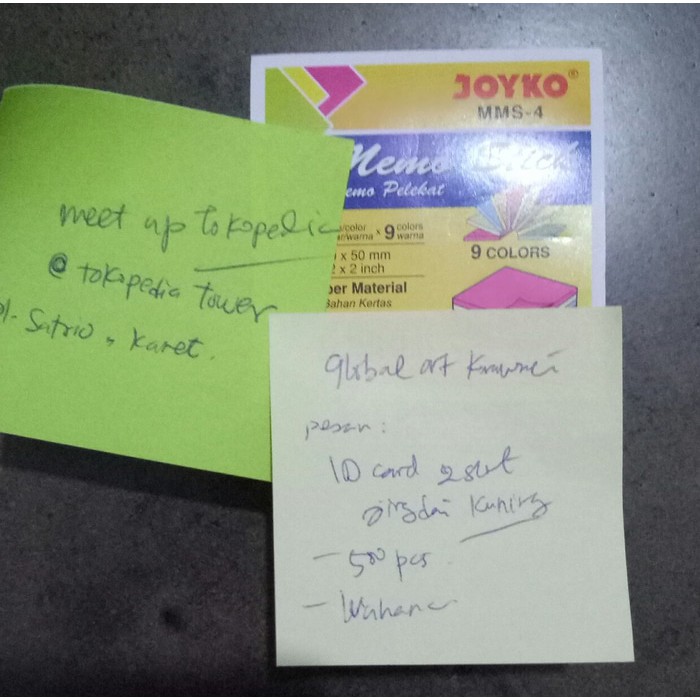 JOYKO®
MMS-4
Memo Stick
emo Pelekat
color
ar/warna x 9 colors
warna
x 50 mm
x 2 inch
9 COLORS
per Material
Bahan Kertas
meet up tokopedia
@ tokopedia tower
Jl. Satrio, Karet.
global art
pesan:
ID card 2 slot
Kuning
- 500 pcs.
- Wahana